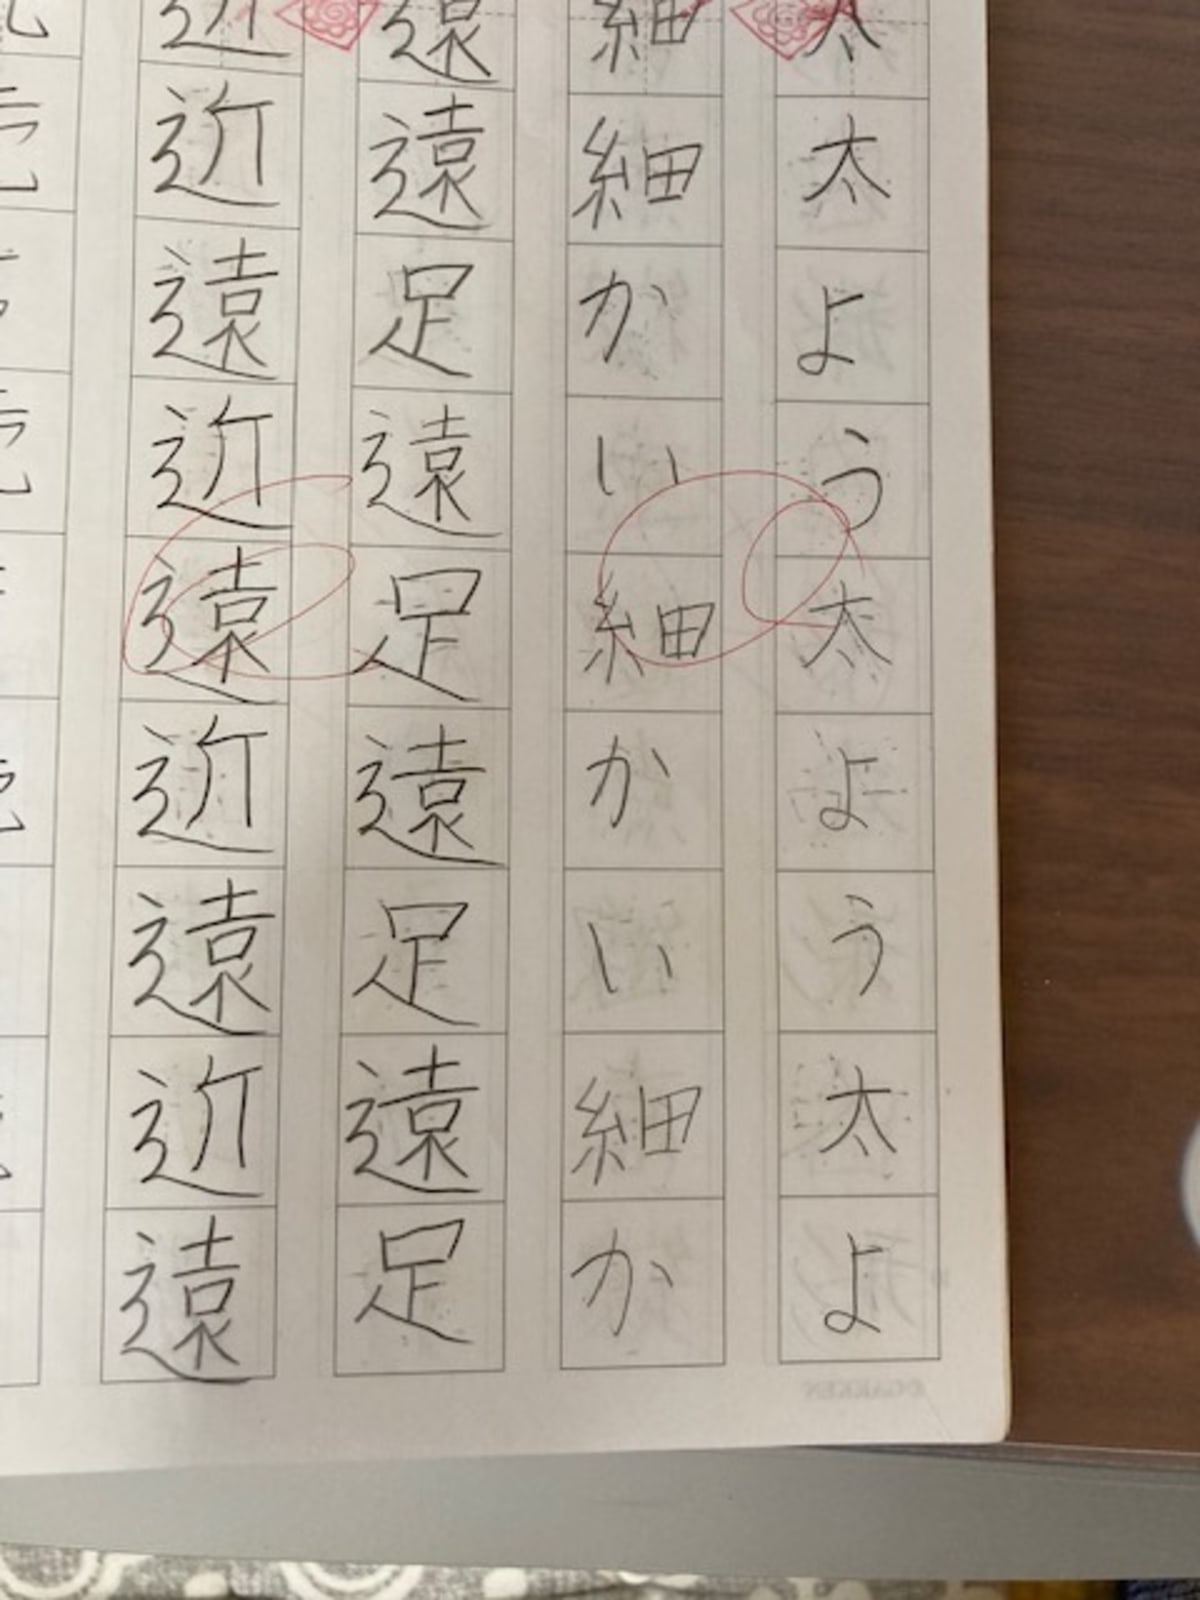 太太よう太よう太よ
細細かい細かい細か
遠遠足遠足遠足遠足
近近遠近遠近遠近遠